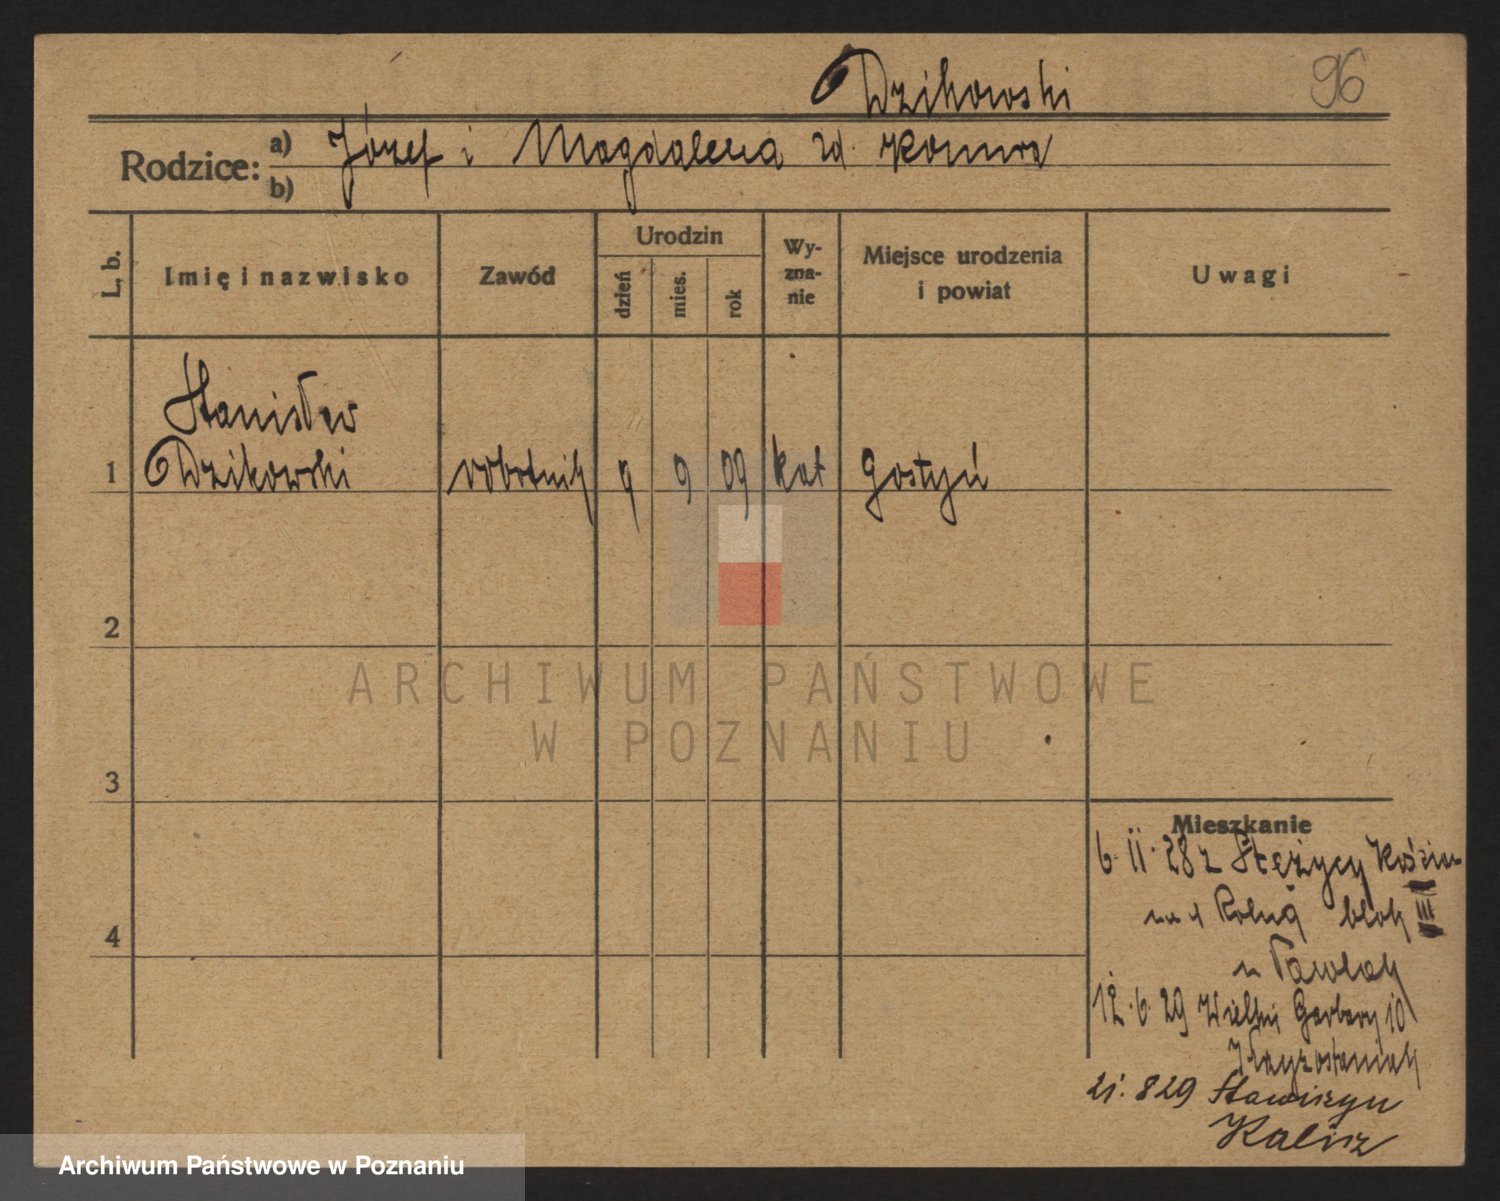 Dzikowski
96
Rodzice: a) Józef i Magdalena zd.
b)
L. b.
Imię i nazwisko
Zawód
Urodzin
dzień
mies.
rok
Wy-
zna-
nie
Miejsce urodzenia
i powiat
Uwagi
Stanisław
1 Dzikowski robotnik 9 9 09 kat Gostyń
2
3
4
Mieszkanie
6. II. 28 z Stężycy
Rolną blok III
Pawlak
12. 6. 29 Wielkie Garbary 10
21. 8 29 Stawiszyn
Kalisz
ARCHIWUM PAŃSTWOWE
W POZNANIU
Archiwum Państwowe w Poznaniu